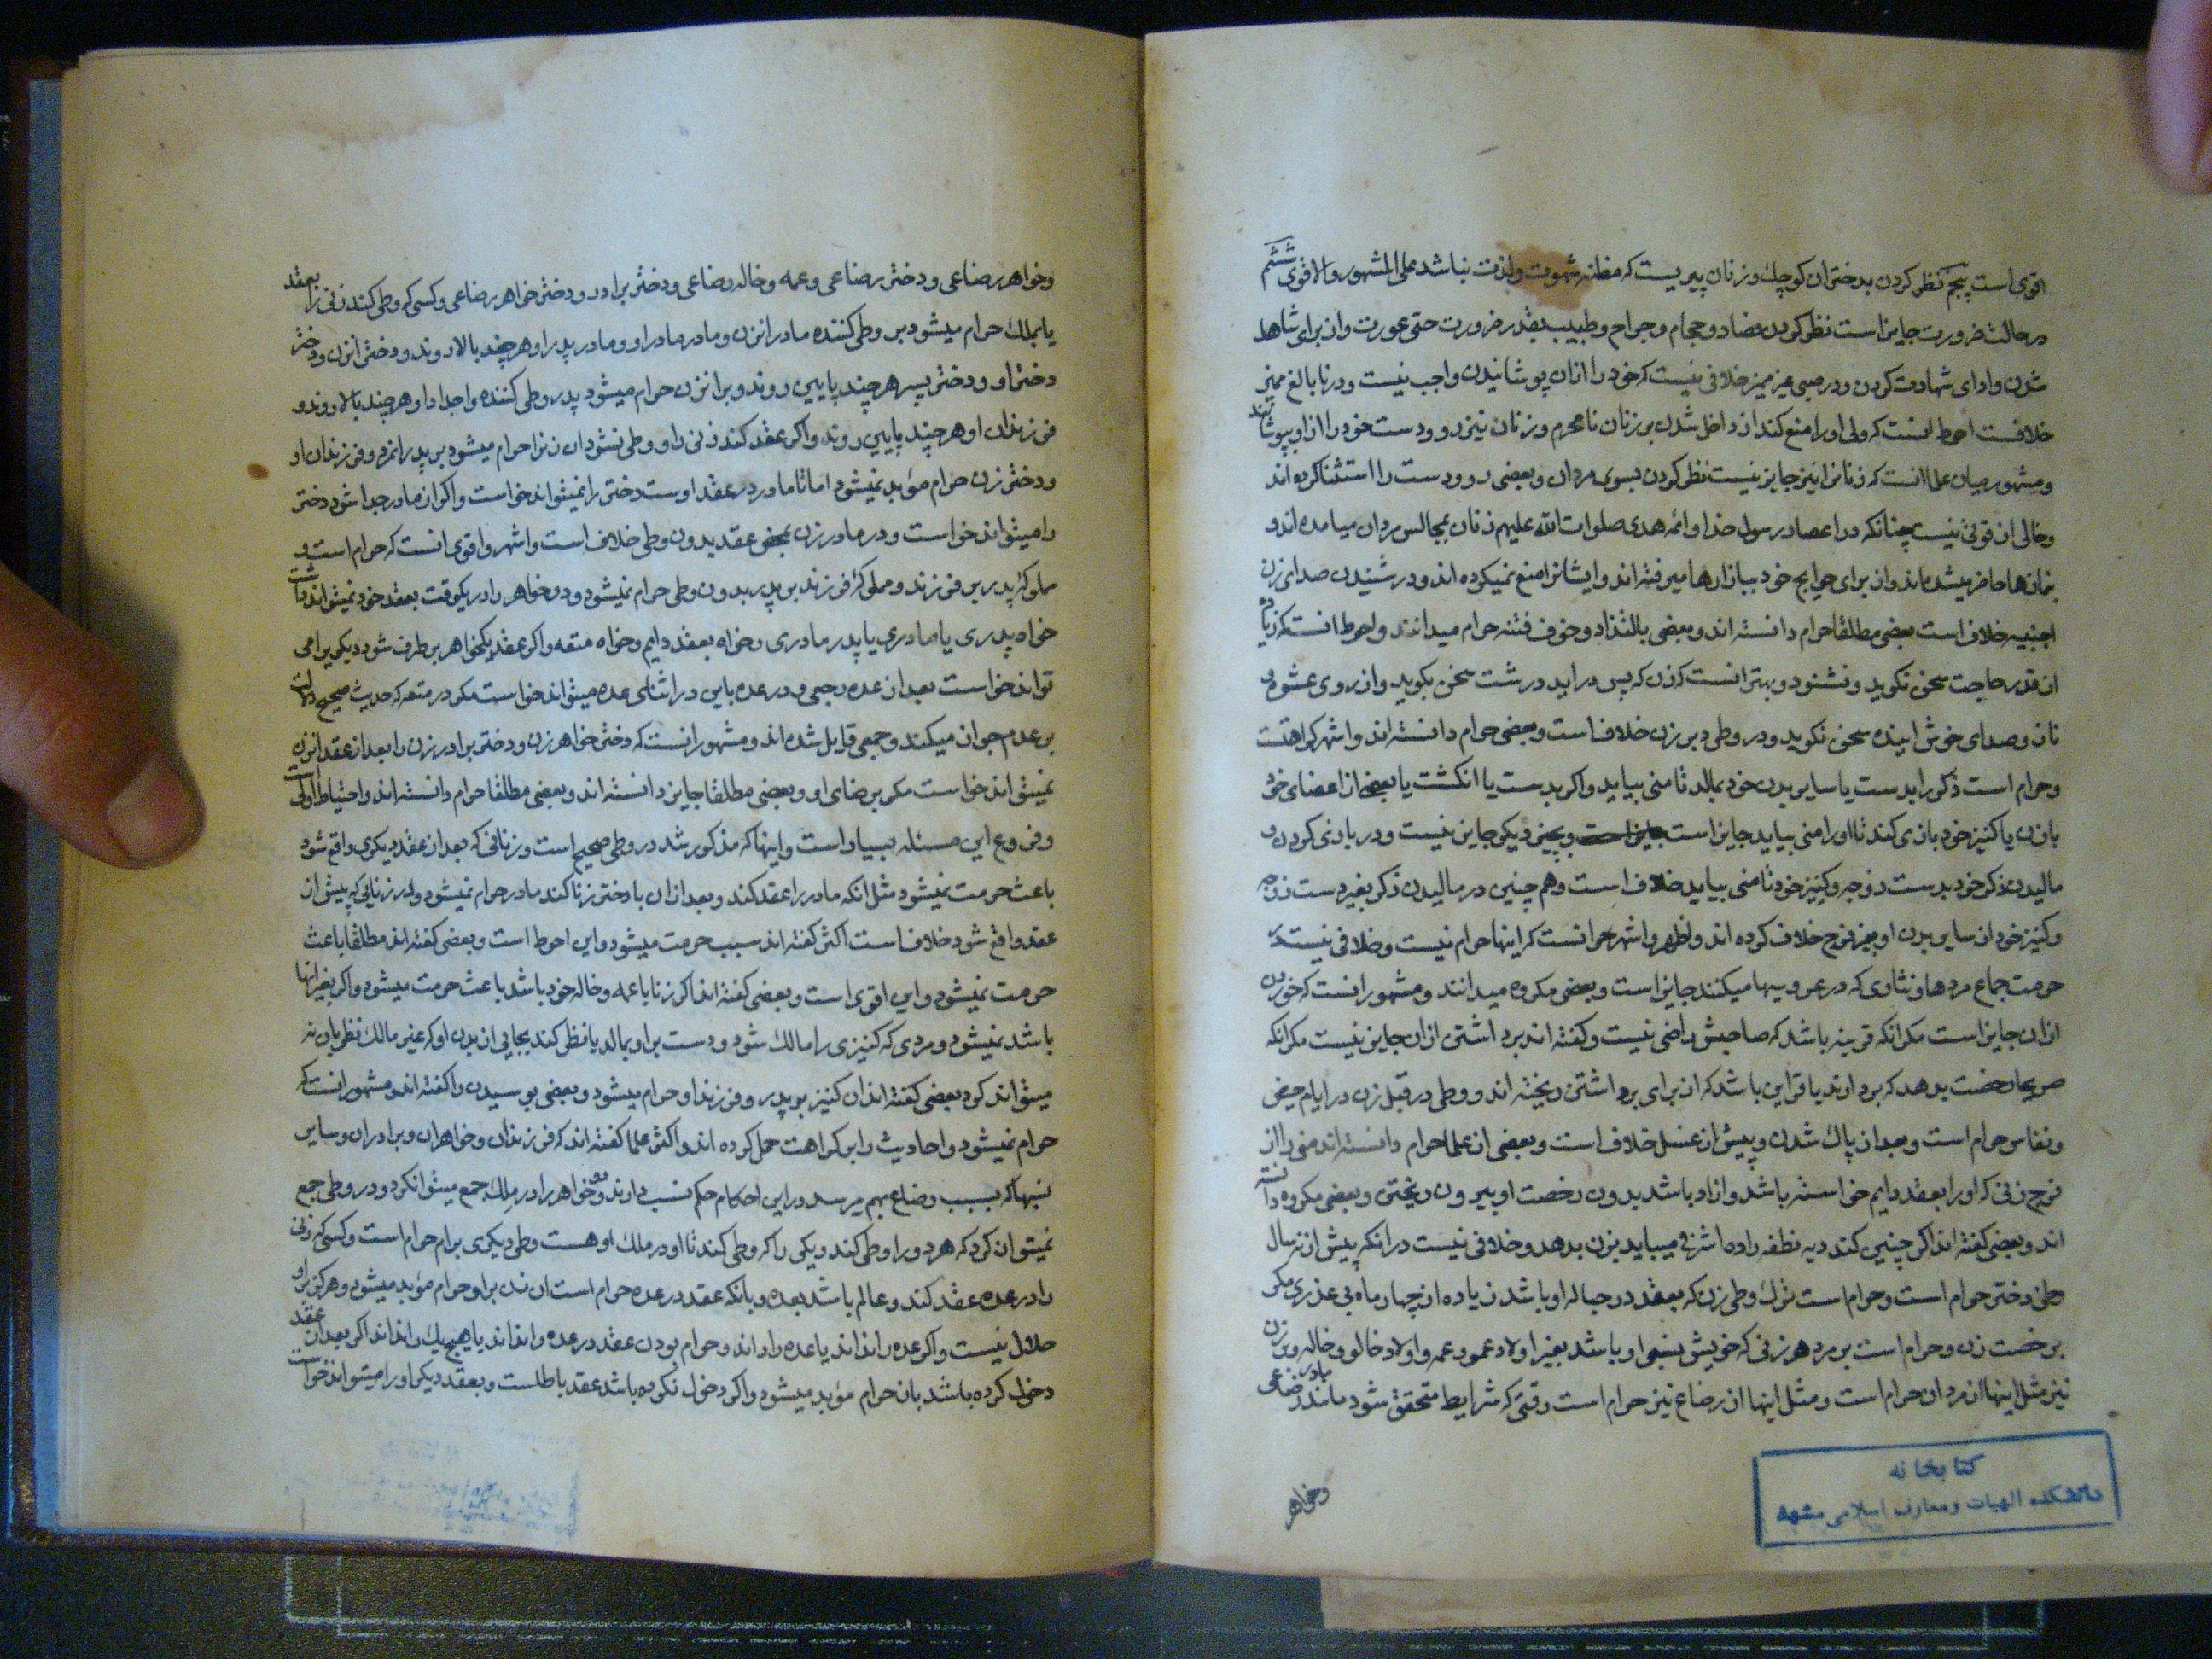 اقوی است پنجم نظر کردن بدختران کوچک و زنان پیریست که مظنه شهوت ولذت نباشد علی المشهور والاقوی ششم
در حالت ضرورت جایز است نظر کردن فصاد و حجام و جراح و طبیب بقدر ضرورت حتی عورت و از برای شاهد
شدن و ادای شهادت کردن و در صبی غیر ممیز خلافی نیست که خود را ازان پوشانیدن واجب نیست و در نابالغ ممیز
خلافست احوط انست که ولی او را منع کند از داخل شدن بر زنان نامحرم و زنان نیز رو و دست خود را از او بپوشانند
و مشهور میان علما انست که زنانرا نیز جایز نیست نظر کردن بسوی مردان و بعضی رو و دست را استثنا کرده اند
و خالی از قوتی نیست چنانکه در اعصار رسول خدا و ائمه هدی صلوات الله علیهم زنان بمجالس مردان میامده اند و
بنمازها حاضر میشده اند و از برای حوایج خود ببازارها میرفته اند و ایشانرا منع نمیکرده اند و در شنیدن صدای زن
اجنبیه خلاف است بعضی مطلقا حرام دانسته اند و بعضی بالتذاذ و خوف فتنه حرام میدانند و احوط انست که زیاده
از قدر حاجت سخن نکوید و نشنود و بهتر انست که زن که پس در اید درشت سخن بکوید و از روی عشوه و
ناز و صدای خوش اینده سخن نکوید و در وطی دبر زن خلاف است و بعضی حرام دانسته اند و اشهر کراهتست
و حرام است ذکر را بدست یا سایر بدن خود بمالد تا منی بیاید و اکر بدست یا انکشت یا بعضی از اعضای خود
با زن یا کنیز خود بازی کند تا او را منی بیاید جایز است و بچیز دیکر جایز نیست و در بازی کردن و
مالیدن ذکر خود بدست زوجه و کنیز خود تا منی بیاید خلاف است و هم چنین در مالیدن ذکر بغیر دست زوجه
و کنیز خود از سایر بدن او بجز فرج خلاف کرده اند و اظهر و اشهر انست که اینها حرام نیست و خلافی نیست در
حرمت جماع مردها و نثاری که در عروسیها میکنند جایز است و بعضی مکروه میدانند و مشهور انست که خوردن
ازان جایز است مکر انکه قرینه باشد که صاحبش راضی نیست و کفته اند برداشتن ازان جایز نیست مکر انکه
صریحا رخصت بدهد که بردارند یا قراین باشد که از برای برداشتن ریخته اند و وطی در قبل زن در ایام حیض
و نفاس حرام است و بعد از پاک شدن و پیش از غسل خلاف است و بعضی از علما حرام دانسته اند منی را از
فرج زنی که او را بعقد دایم خواسته باشد و ازاد باشد بدون رخصت او بیرون ریختن و بعضی مکروه دانسته
اند و بعضی کفته اند اکر چنین کند دیه نطفه را ده اشرفی میباید بزن بدهد و خلافی نیست در انکه پیش از نه سال
وطی دختر حرام است و حرام است ترک وطی زن که بعقد در حباله او باشد زیاده از چهار ماه بی عذری مکر
برخصت زن و حرام است بر مرد هر زنی که خویش نسبی او باشد بغیر اولاد عم و عمه و اولاد خالو و خاله و بر زن
نیز مثل اینها از مردان حرام است و مثل اینها از رضاع نیز حرام است وقتی که شرایط متحقق شود مانند مادر رضاعی
وخواهر
کتابخانه
دانشکده الهیات ومعارف اسلامی مشهد
وخواهر رضاعی و دختر رضاعی و عمه و خاله رضاعی و دختر برادر و دختر خواهر رضاعی و کسی که وطی کند زنی را بعقد
یا بملک حرام میشود بر وطی کننده مادر انزن و مادر مادر او و مادر پدر او هر چند بالا روند و دختر انزن و دختر
دختر او و دختر پسر هر چند پایین روند و بر انزن حرام میشود پدر وطی کننده و اجداد او هر چند بالا روند و
فرزندان او هر چند پایین روند و اکر عقد کند زنی را و وطی نشود ان زن حرام میشود بر پدر انمرد و فرزندان او
و دختر زن حرام مؤبد نمیشود اما تا مادر در عقد اوست دختر را نمیتواند خواست و اکر از مادر جدا شود دختر
را میتواند خواست و در مادر زن بمحض عقد بدون وطی خلاف است و اشهر و اقوی انست که حرام است و
مملوکه پدر بر فرزند و مملوکه فرزند بر پدر بدون وطی حرام نمیشود و دو خواهر را در یکوقت بعقد خود نمیتواند داشت
خواه پدری یا مادری یا پدر مادری و خواه بعقد دایم و خواه متعه و اکر عقد یکخواهر بر طرف شود دیکریرا می
تواند خواست بعد از عده رجعی و در عده باین در اثنای عده میتواند خواست مکر در متعه که حدیث صحیح دلالت
بر عدم جواز میکند و جمعی قایل شده اند و مشهور انست که دختر خواهر زن و دختر برادر زن را بعد از عقد انزن
نمیتواند خواست مکر برضای او و بعضی مطلقا جایز دانسته اند و بعضی مطلقا حرام دانسته اند و احتیاط اولی است
و فروع این مسئله بسیار است و اینها که مذکور شد در وطی صحیح است و زنائی که بعد از عقد دیکری واقع شود
باعث حرمت نمیشود مثل انکه مادر را عقد کند و بعد ازان با دختر زنا کند مادر حرام نمیشود و در زنایی که پیش از
عقد واقع شود خلاف است اکثر کفته اند سبب حرمت میشود و این احوط است و بعضی کفته اند مطلقا باعث
حرمت نمیشود و این اقوی است و بعضی کفته اند اکر زنا با عمه و خاله خود باشد باعث حرمت میشود و اکر بغیر اینها
باشد نمیشود و مردی که کنیزی را مالک شود و دست بر او بمالد یا نظر کند بجایی از بدن او که غیر مالک نظر باو نه
میتواند کرد بعضی کفته اند ان کنیز بر پدر و فرزند او حرام میشود و بعضی بوسیدن را کفته اند و مشهور انست که
حرام نمیشود و احادیث را بر کراهت حمل کرده اند و اکثر علما کفته اند که فرزندان و خواهران و برادران و سایر
نسبها که بسبب رضاع بهم میرسد در این احکام حکم نسب دارند و دو خواهر را در ملک جمع میتوانکرد و در وطی جمع
نمیتوان کرد که هر دو را وطی کند و یکی را که وطی کند تا او در ملک او هست وطی دیکری برام حرام است و کسی که زنی
را در عده عقد کند و عالم باشد بعده و بانکه عقد در عده حرام است ان زن بر او حرام مؤبد میشود و هرکز بر او
حلال نیست و اکر عده را نداند یا عده را داند و حرام بودن عقد در عده را نداند یا هیچ یک را نداند اکر بعد از عقد
دخول کرده باشد بازن حرام مؤبد میشود و اکر دخول نکرده باشد عقد باطلست و بعقد دیکر او را میتواند خواست